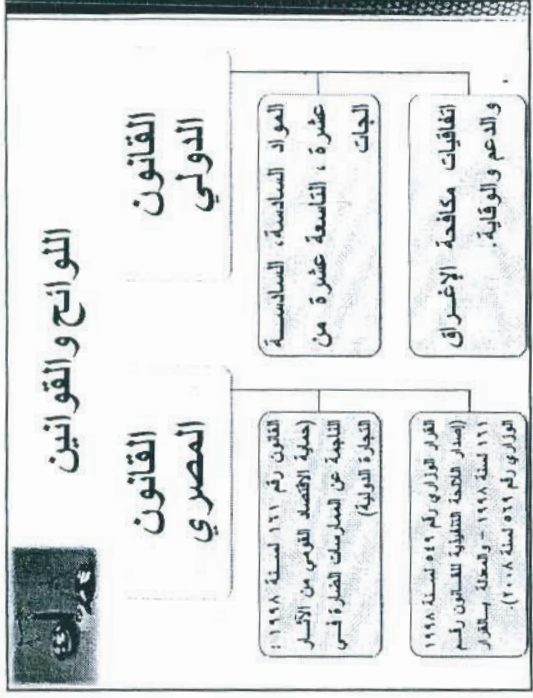 اللوائح والقوانين
القانون
الدولي
المواد السادسة، السادسة
عشرة ، التاسعة عشرة من
الجات
اتفاقيات مكافحة الإغراق
والدعم والوقاية.
القانون
المصري
القانون رقم ١٦١ لسنة ١٩٩٨ :
(حمية الاقتصاد القومي من الآثار
الناجمة عن الممارسات الضارة في
التجارة الدولية)
القرار الوزاري رقم ٥٤٩ لسنة ١٩٩٨
(إصدار اللائحة التنفيذية للقانون رقم
١٦١ لسنة ١٩٩٨ – والمعدلة بالقرار
الوزاري رقم ٥٦٩ لسنة ٢٠٠٨).